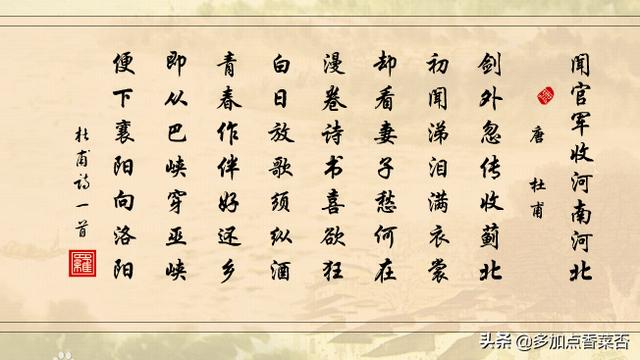 闻官军收河南河北
唐 杜甫
剑外忽传收蓟北
初闻涕泪满衣裳
却看妻子愁何在
漫卷诗书喜欲狂
白日放歌须纵酒
青春作伴好还乡
即从巴峡穿巫峡
便下襄阳向洛阳
杜甫诗一首
头条 @多加点香菜否